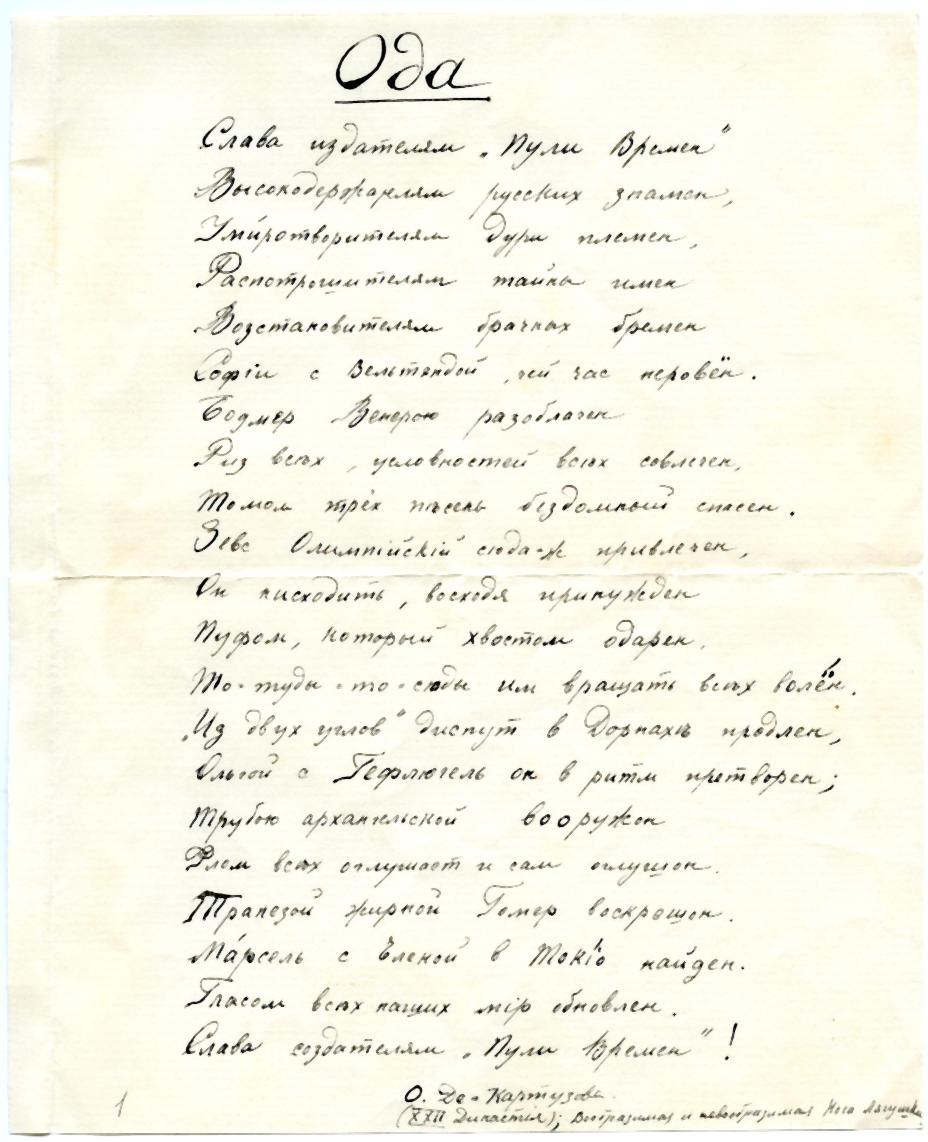 Ода
Слава издателям „Пули Времен“
Высокодержателям русских знамен,
Умиротворителям дури племен,
Распотрошителям тайны имен
Возстановителям брачных бремен
Софіи с Вельтендой, чей час неровён.
Бодмер Венерою разоблачен
Риз всѣх, условностей всѣх совлечен,
Томом трёх пѣсень бездомный спасен.
Зевс Олимпійскій сюда-ж привлечен,
Он нисходить, восходя принужден
Пуфом, который хвостом одарен.
То-туды-то-сюды им вращать всѣх волён.
„Из двух углов“ диспут в Дорнахѣ продлен,
Ольгой с Гефлюгель он в ритм претворен;
Трубою архангельской вооружон
Рлом всѣх оглушает и сам оглушон.
Трапезой жирной Гомер воскрешон.
Марсель с Еленой в Токіо найден.
Гласом всѣх нащих мір обновлен.
Слава создателям „Пули Времен“!
О. Де-Картузова.
(XXII Династія); Вообразимая и невообразимая Нога Лягушки
1